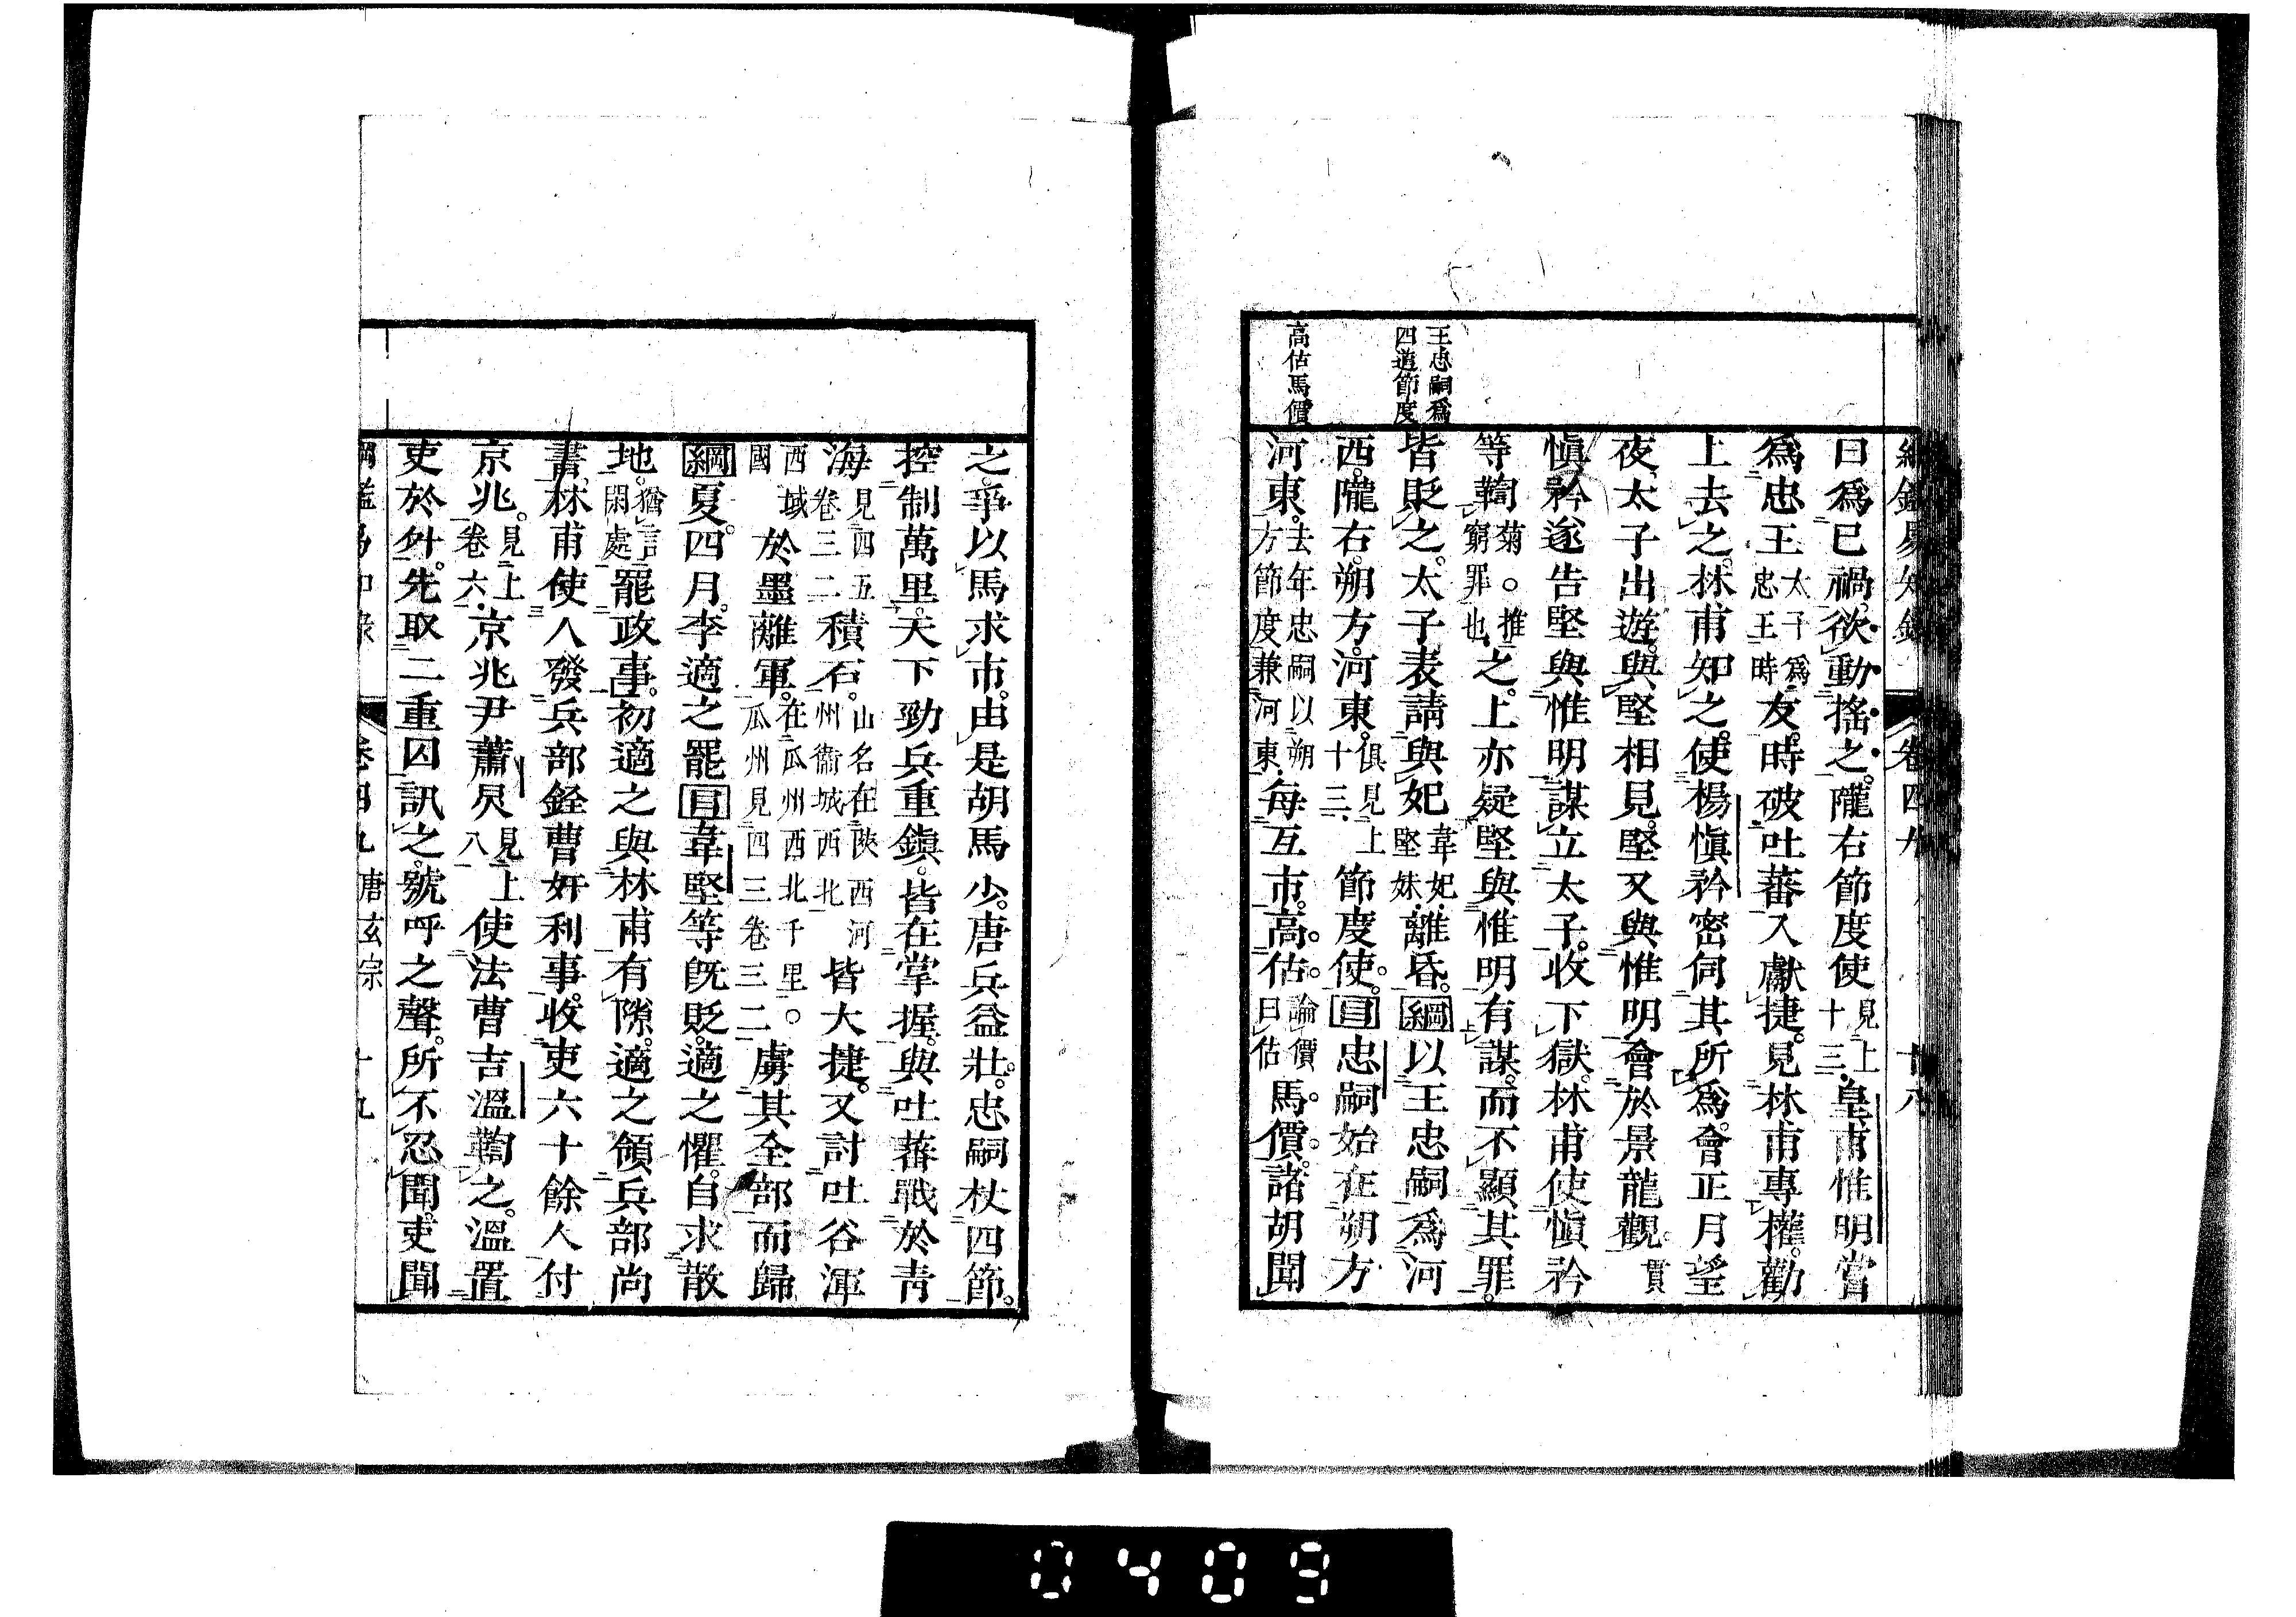 卷四九
王忠嗣爲
四道節度
高估馬價
曰爲已禍。欲動搖之。隴右節度使見上十三皇甫惟明嘗
爲忠王太子爲忠王時友。時破吐蕃入獻捷。見林甫專權。勸
上去之。林甫知之。使楊愼矜密伺其所爲。會正月望
夜、太子出遊。與堅相見。堅又與惟明會於景龍觀。貫
愼矜遂告堅與惟明謀立太子。收下獄。林甫使愼矜
等鞫菊○推窮罪也之。上亦疑堅與惟明有謀。而不顯其罪。
皆貶之。太子表請與妃韋妃堅妹離昏。綱以王忠嗣爲河
西。隴右。朔方。河東。俱見上十三節度使。目忠嗣始在朔方
河東。去年忠嗣以朔方節度兼河東每互市。高估論價曰估馬價。諸胡聞
之。爭以馬求市。由是胡馬少。唐兵益壯。忠嗣杖四節。
控制萬里。天下勁兵重鎭。皆在掌握。與吐蕃戰於靑
海見四五卷三二積石。山名在陜西河州衞城西北皆大捷。又討吐谷渾
西域國於墨離軍。在瓜州西北千里○瓜州見四三卷三二虜其全部而歸
綱夏。四月。李適之罷目韋堅等旣貶。適之懼。自求散
地。猶言閑處罷政事。初適之與林甫有隙。適之領兵部尚
書。林甫使人發兵部銓曹奸利事。收吏六十餘人付
京兆。見上卷六京兆尹蕭炅見上八使法曹吉溫鞫之。溫置
吏於外。先取二重囚訊之。號呼之聲。所不忍聞。吏聞
卷四九 唐玄宗 十九